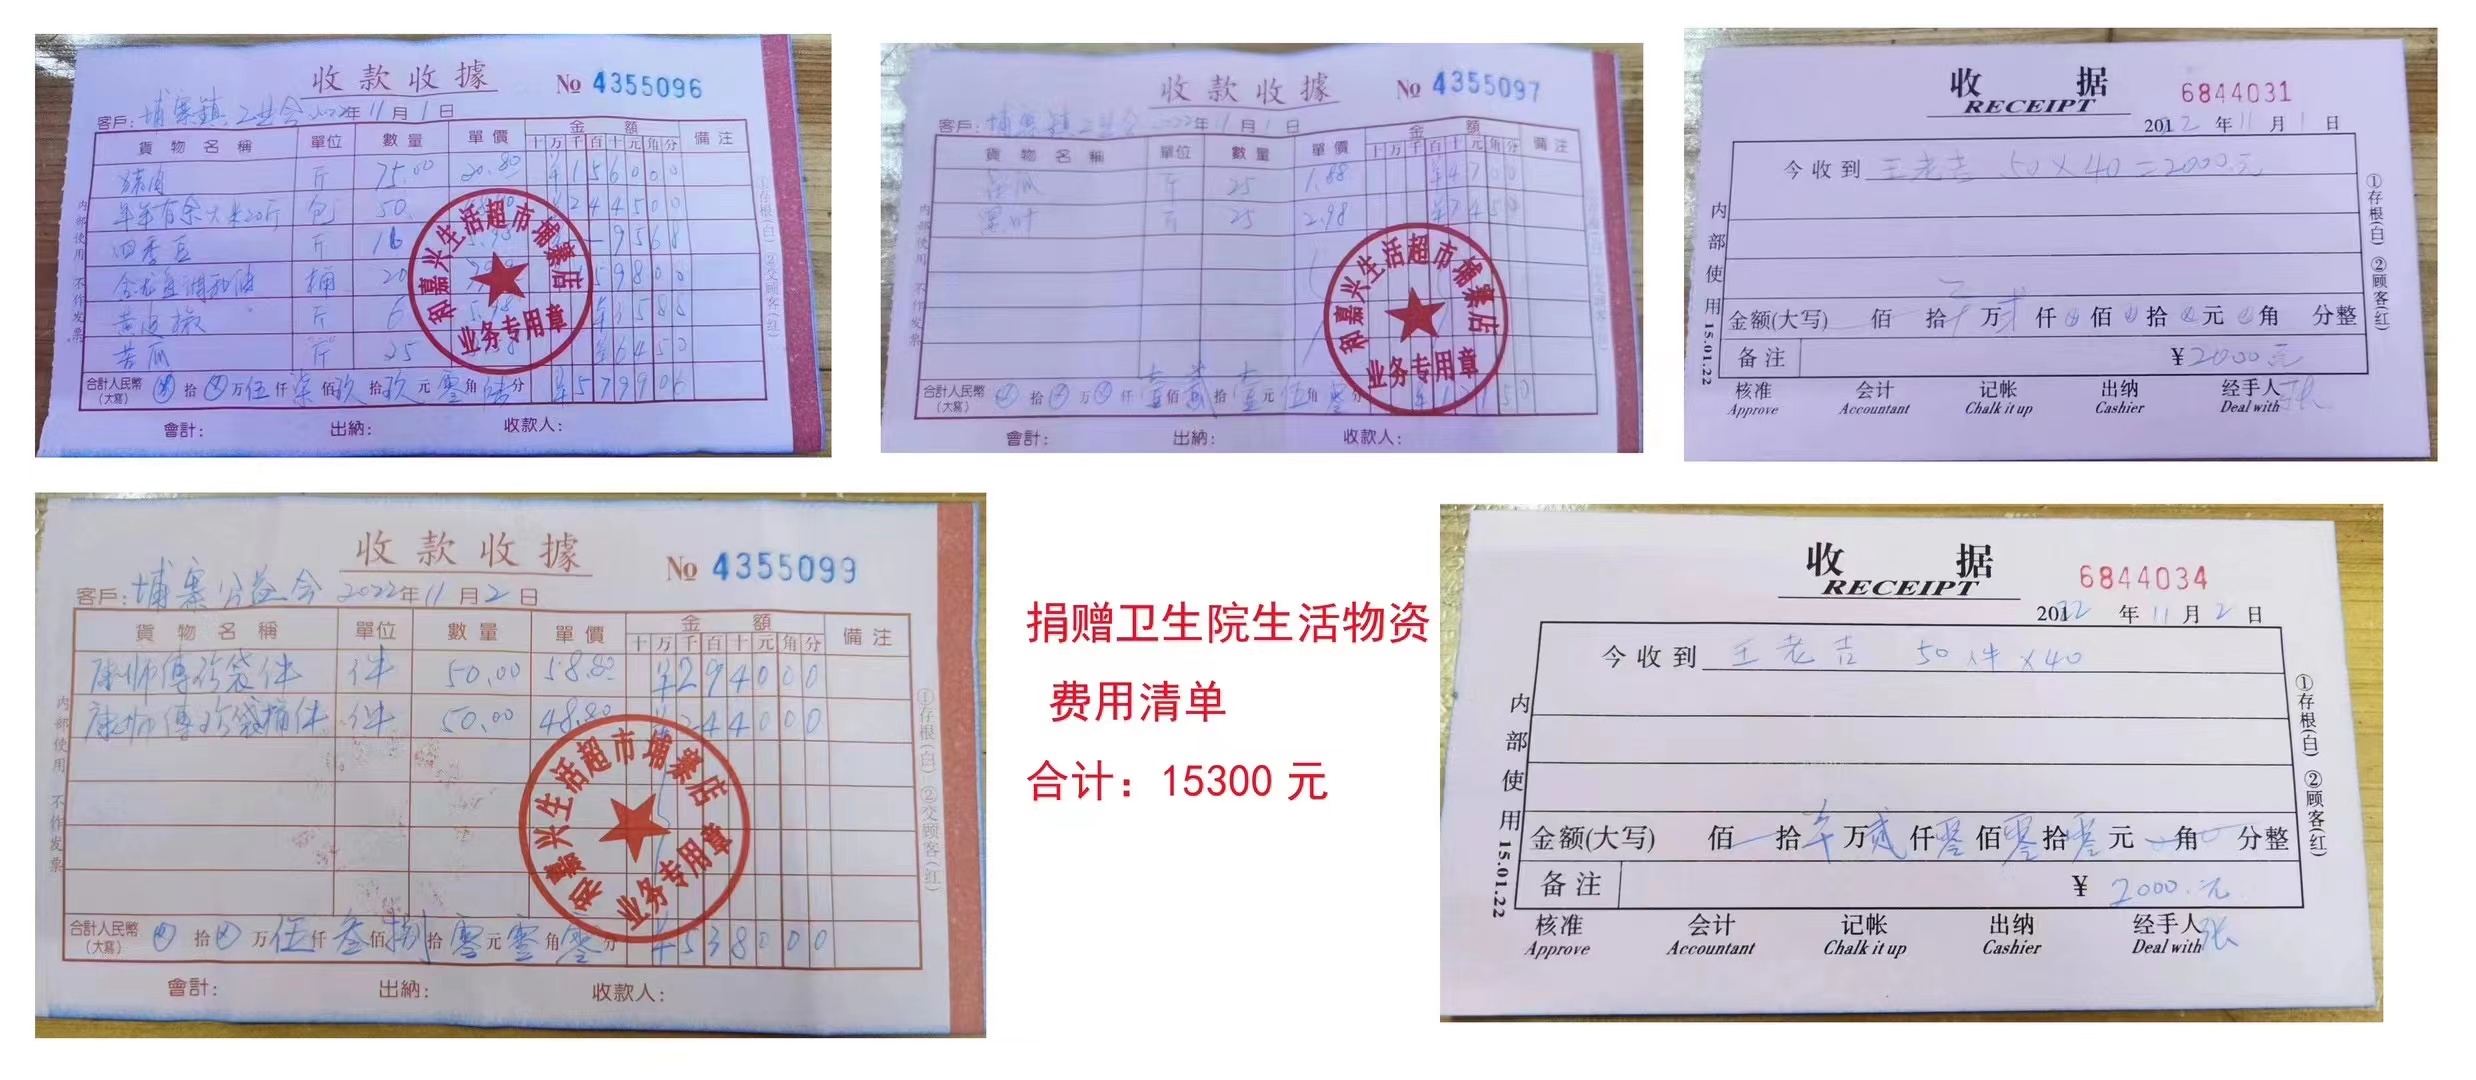 收款收據 No 4355096
客戶: 埔寨鎮公益会 2022年11月1日
貨物名稱 單位 數量 單價 金額 備注
十万千百十元角分
猪肉 斤 75.00 20.80 ¥156000
年年有余大米20斤 包 50. 244500
四季豆 斤 16 5.98 9568
桶 20 159800
黄皮椒 斤 6 5.98 ¥3588
苦瓜 斤 25 ¥6450
合計人民幣(大寫) ⊗拾⊗万伍仟柒佰玖拾玖元零角陆分 ¥579906
會計: 出納: 收款人:
内部使用 不作发票
①存根(白) ②交顾客(红)
和嘉兴生活超市埔寨店
业务专用章
收款收據 No 4355097
客戶: 埔寨鎮公益会 2022年11月1日
貨物名稱 單位 數量 單價 金額 備注
十万千百十元角分
瓜 斤 25 1.88 ¥4700
斤 25 2.98 ¥7450
合計人民幣(大寫) ⊗拾⊗万⊗仟壹佰贰拾壹元伍角零分 ¥12150
會計: 出納: 收款人:
内部使用 不作发票
和嘉兴生活超市埔寨店
业务专用章
收据
RECEIPT 6844031
2022年11月1日
今收到 王老吉 50×40=2000元
金额(大写) 佰 拾 万 贰仟⊗佰⊗拾⊗元⊗角 分整
备注 ¥2000元
核准 会计 记帐 出纳 经手人 张
Approve Accountant Chalk it up Cashier Deal with
内部使用 15.01.22
①存根(白) ②顾客(红)
收款收據 No 4355099
客戶: 埔寨公益会 2022年11月2日
貨物名稱 單位 數量 單價 金額 備注
十万千百十元角分
康师傅 袋件 件 50.00 58.80 ¥294000
康师傅 袋桶件 件 50.00 48.80 ¥244000
合計人民幣(大寫) ⊗拾⊗万伍仟叁佰捌拾零元零角零分 ¥538000
會計: 出納: 收款人:
内部使用 不作发票
①存根(白) ②交顾客(红)
和嘉兴生活超市埔寨店
业务专用章
捐赠卫生院生活物资
费用清单
合计：15300 元
收据
RECEIPT 6844034
2022年11月2日
今收到 王老吉 50件×40
金额(大写) 佰 拾 万贰仟零佰零拾零元 角 分整
备注 ¥2000.元
核准 会计 记帐 出纳 经手人 张
Approve Accountant Chalk it up Cashier Deal with
内部使用 15.01.22
①存根(白) ②顾客(红)